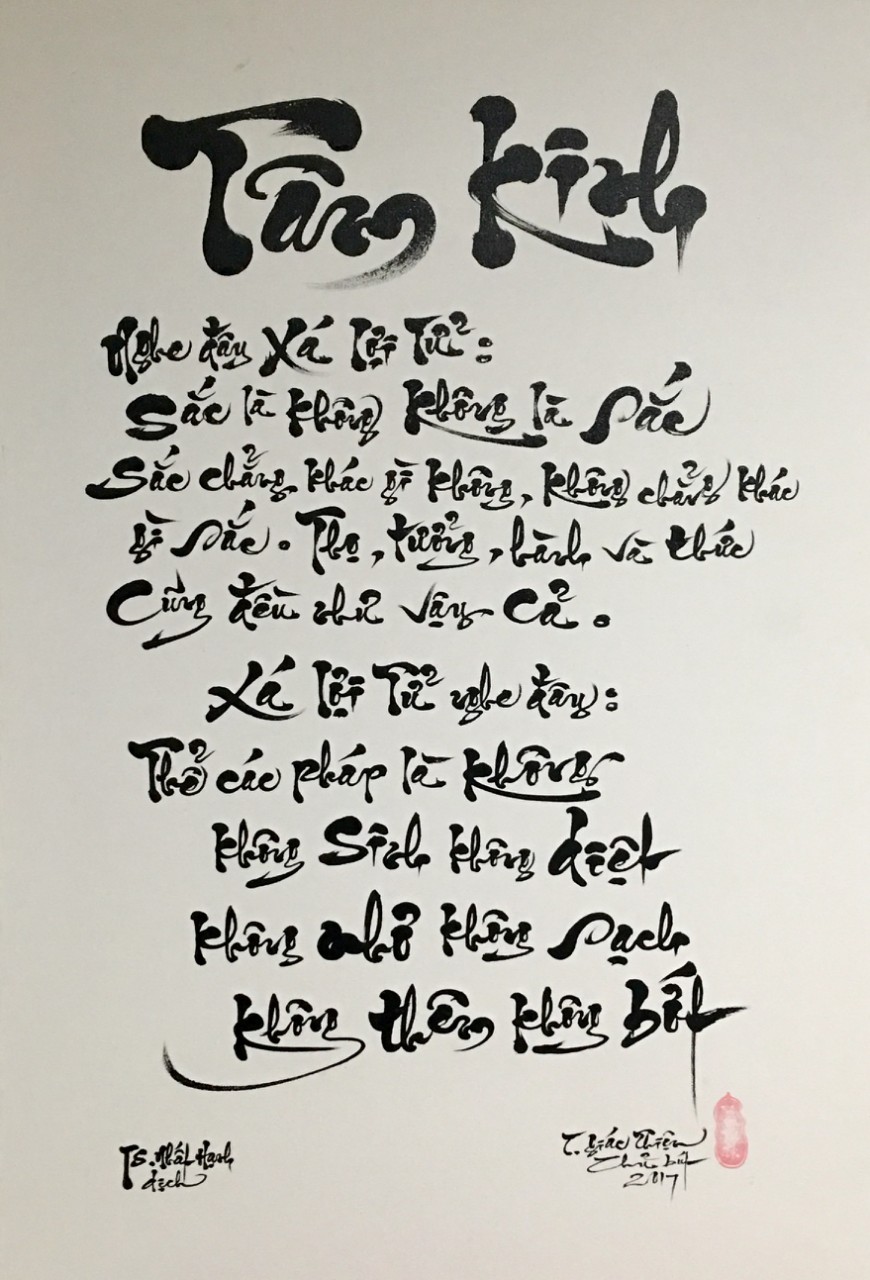 Tâm Kinh
Nghe đây Xá Lợi Tử :
Sắc là không không là sắc
Sắc chẳng khác gì không, không chẳng khác
gì sắc. Thọ, tưởng, hành và thức
Cũng đều như vậy cả.
Xá Lợi Tử nghe đây :
Thể các pháp là không
không sinh không diệt
không nhơ không sạch
không thêm không bớt
TS. Nhất Hạnh
dịch
T. Giác Thiện
Thủ bút
2017